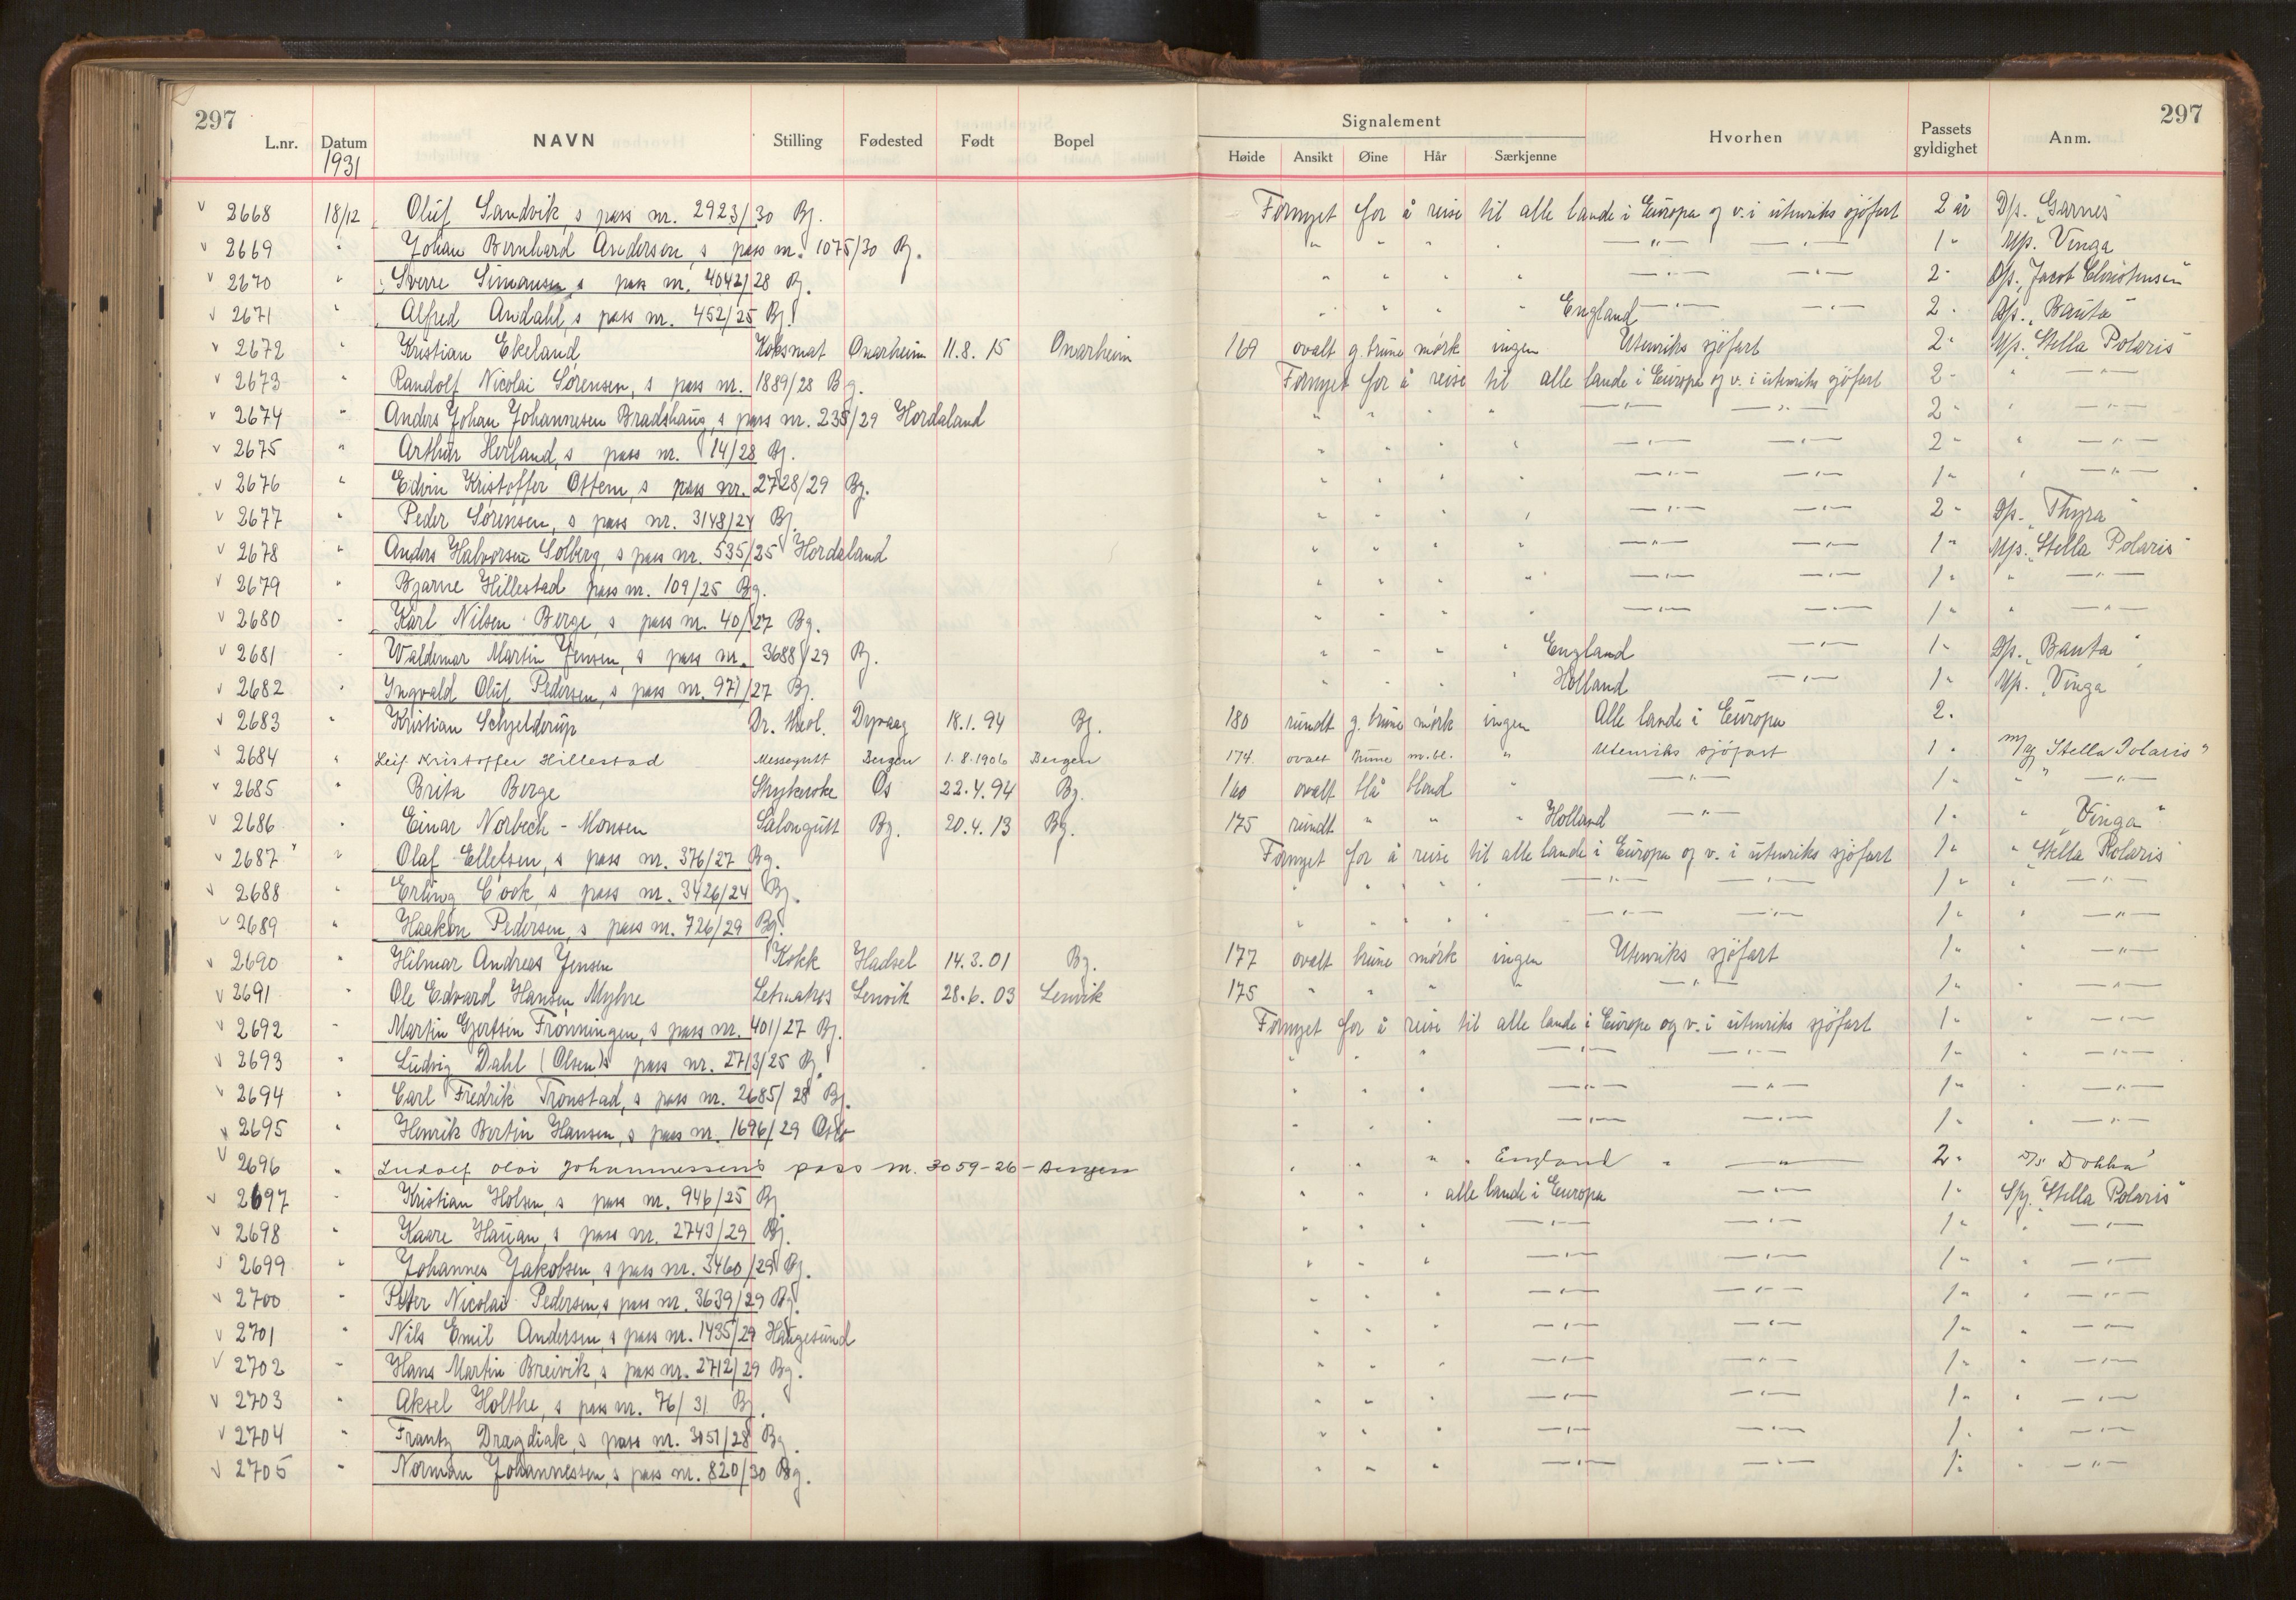 297 297
L.nr. Datum NAVN Stilling Fødested Født Bopel Signalement Høide Ansikt Øine Hår Særkjenne Hvorhen Passets gyldighet Anm.
1931
v 2668 18/12 Oluf Sandvik, s pass nr. 2923/30 Bg. Fornyet for å reise til alle lande i Europa og v. i utenriks sjöfart 2 år D/s. „Garnes"
v 2669 " Johan Bernhard Anderson, s pass nr. 1075/30 Bg. " " " " —"— —"— 1 " M/s. Vinga
v 2670 " Sverre Simonsen, s pass nr. 4042/28 Bg. " " " " —"— —"— 2 " D/s. „Jacob Christensen"
v 2671 " Alfred Andahl, s pass nr. 452/25 Bg. " " " " England —"— —"— 2 " D/s. „Bauta"
v 2672 " Kristian Ekeland Koksmat Onarheim 11.8.15 Onarheim 169 ovalt g. brune mørk ingen Utenriks sjöfart 2 " M/s. „Stella Polaris"
v 2673 " Randolf Nicolai Sørensen, s pass nr. 1889/28 Bg. Fornyet for å reise til alle lande i Europa og v. i utenriks sjöfart 2 " " —"—
v 2674 " Anders Johan Johannesen Bradshaug, s pass nr. 235/29 Hordaland " " " " —"— —"— 2 " " —"—
v 2675 " Arthur Herland, s pass nr. 14/28 Bg. " " " " —"— —"— 2 " " —"—
v 2676 " Edvin Kristoffer Ottem, s pass nr. 2728/29 Bg. " " " " —"— —"— 1 " " —"—
v 2677 " Peder Sørensen, s pass nr. 3148/24 Bg. " " " " —"— —"— 2 " D/s. „Thyra"
v 2678 " Anders Halvorsen Solberg, s pass nr. 535/25 Hordaland " " " " —"— —"— 1 " M/s. „Stella Polaris"
v 2679 " Bjarne Hillestad pass nr. 109/25 Bg. " " " " —"— —"— 1 " " —"—
v 2680 " Karl Nilsen Berge, s pass nr. 40/27 Bg. " " " " —"— —"— 1 " " —"—
v 2681 " Waldemar Martin Jensen, s pass nr. 3688/29 Bg. " " " " England —"— 1 " D/s. „Bauta"
v 2682 " Ingvald Oluf Pedersen, s pass nr. 971/27 Bg. " " " " Holland —"— 1 " M/s. „Vinga
v 2683 " Kristian Schjelderup Dr. theol. Dypvaag 18.1.94 Bg. 180 rundt g. brune mørk ingen Alle lande i Europa 2 "
v 2684 " Leif Kristoffer Hillestad Messegutt Bergen 1.8.1906 Bergen 174 ovalt brune m.bl. " Utenriks sjöfart 1 " m/y Stella Polaris"
v 2685 " Brita Berge Strykerske Os 22.4.94 Bg. 160 ovalt blå blond " —"— 1 " " —"—
v 2686 " Einar Norbech-Monsen Salongutt Bg. 20.4.13 Bg. 175 rundt " " " Holland —"— 1 " " „Vinga"
v 2687 " Olaf Ellefsen, s pass nr. 376/27 Bg. Fornyet for å reise til alle lande i Europa og v. i utenriks sjöfart 1 " " „Stella Polaris"
v 2688 " Erling Cook, s pass nr. 3426/24 Bg. " " " " —"— —"— 1 " " —"—
v 2689 " Haakon Pedersen, s pass nr. 726/29 Bg. " " " " —"— —"— 1 " " —"—
v 2690 " Hilmar Andreas Jensen Kokk Hadsel 14.3.01 Bg. 177 ovalt brune mørk ingen Utenriks sjöfart 1 " " —"—
v 2691 " Ole Edvard Hansen Myhre Letmatros Lenvik 28.6.03 Lenvik 175 " " " " —"— 1 " " —"—
v 2692 " Martin Gjertsen Frønningen, s pass nr. 401/27 Bg. Fornyet for å reise til alle lande i Europa og v. i utenriks sjöfart 1 " " —"—
v 2693 " Ludvig Dahl (Olsen)s pass nr. 2713/25 Bg. " " " —"— —"— 1 " " —"—
v 2694 " Carl Fredrik Tronstad, s pass nr. 2685/28 Bg. " " " —"— —"— 1 " " —"—
v 2695 " Henrik Bertin Hansen, s pass nr. 1696/29 Oslo " " " —"— —"— 1 " " —"—
v 2696 " Ludolf Olai Johannessens pass nr. 3059-26 - Bergen " " " " England " —"— 2 " D/s Dokka"
v 2697 " Kristian Holsen, s pass nr. 946/25 Bg. " " " alle lande i Europa —"— 1 " S/y. „Stella Polaris"
v 2698 " Kaare Hauan, s pass nr. 2743/29 Bg. " " " —"— —"— 1 " " —"—
v 2699 " Johannes Jakobsen, s pass nr. 3460/29 Bg. " " " —"— —"— 1 " " —"—
v 2700 " Peter Nicolai Pedersen, s pass nr. 3639/29 Bg. " " " —"— —"— 1 " " —"—
v 2701 " Nils Emil Andersen, s pass nr. 1435/29 Haugesund " " " —"— —"— 1 " " —"—
v 2702 " Hans Martin Breivik, s pass nr. 2712/29 Bg. " " " —"— —"— 1 " " —"—
v 2703 " Aksel Holthe, s pass nr. 76/31 Bg. " " " —"— —"— 1 " " —"—
v 2704 " Frantz Dragdiak, s pass nr. 3151/28 Bg. " " " —"— —"— 1 " " —"—
v 2705 " Norman Johannessen, s pass nr. 820/30 Bg. " " " —"— —"— 1 " " —"—